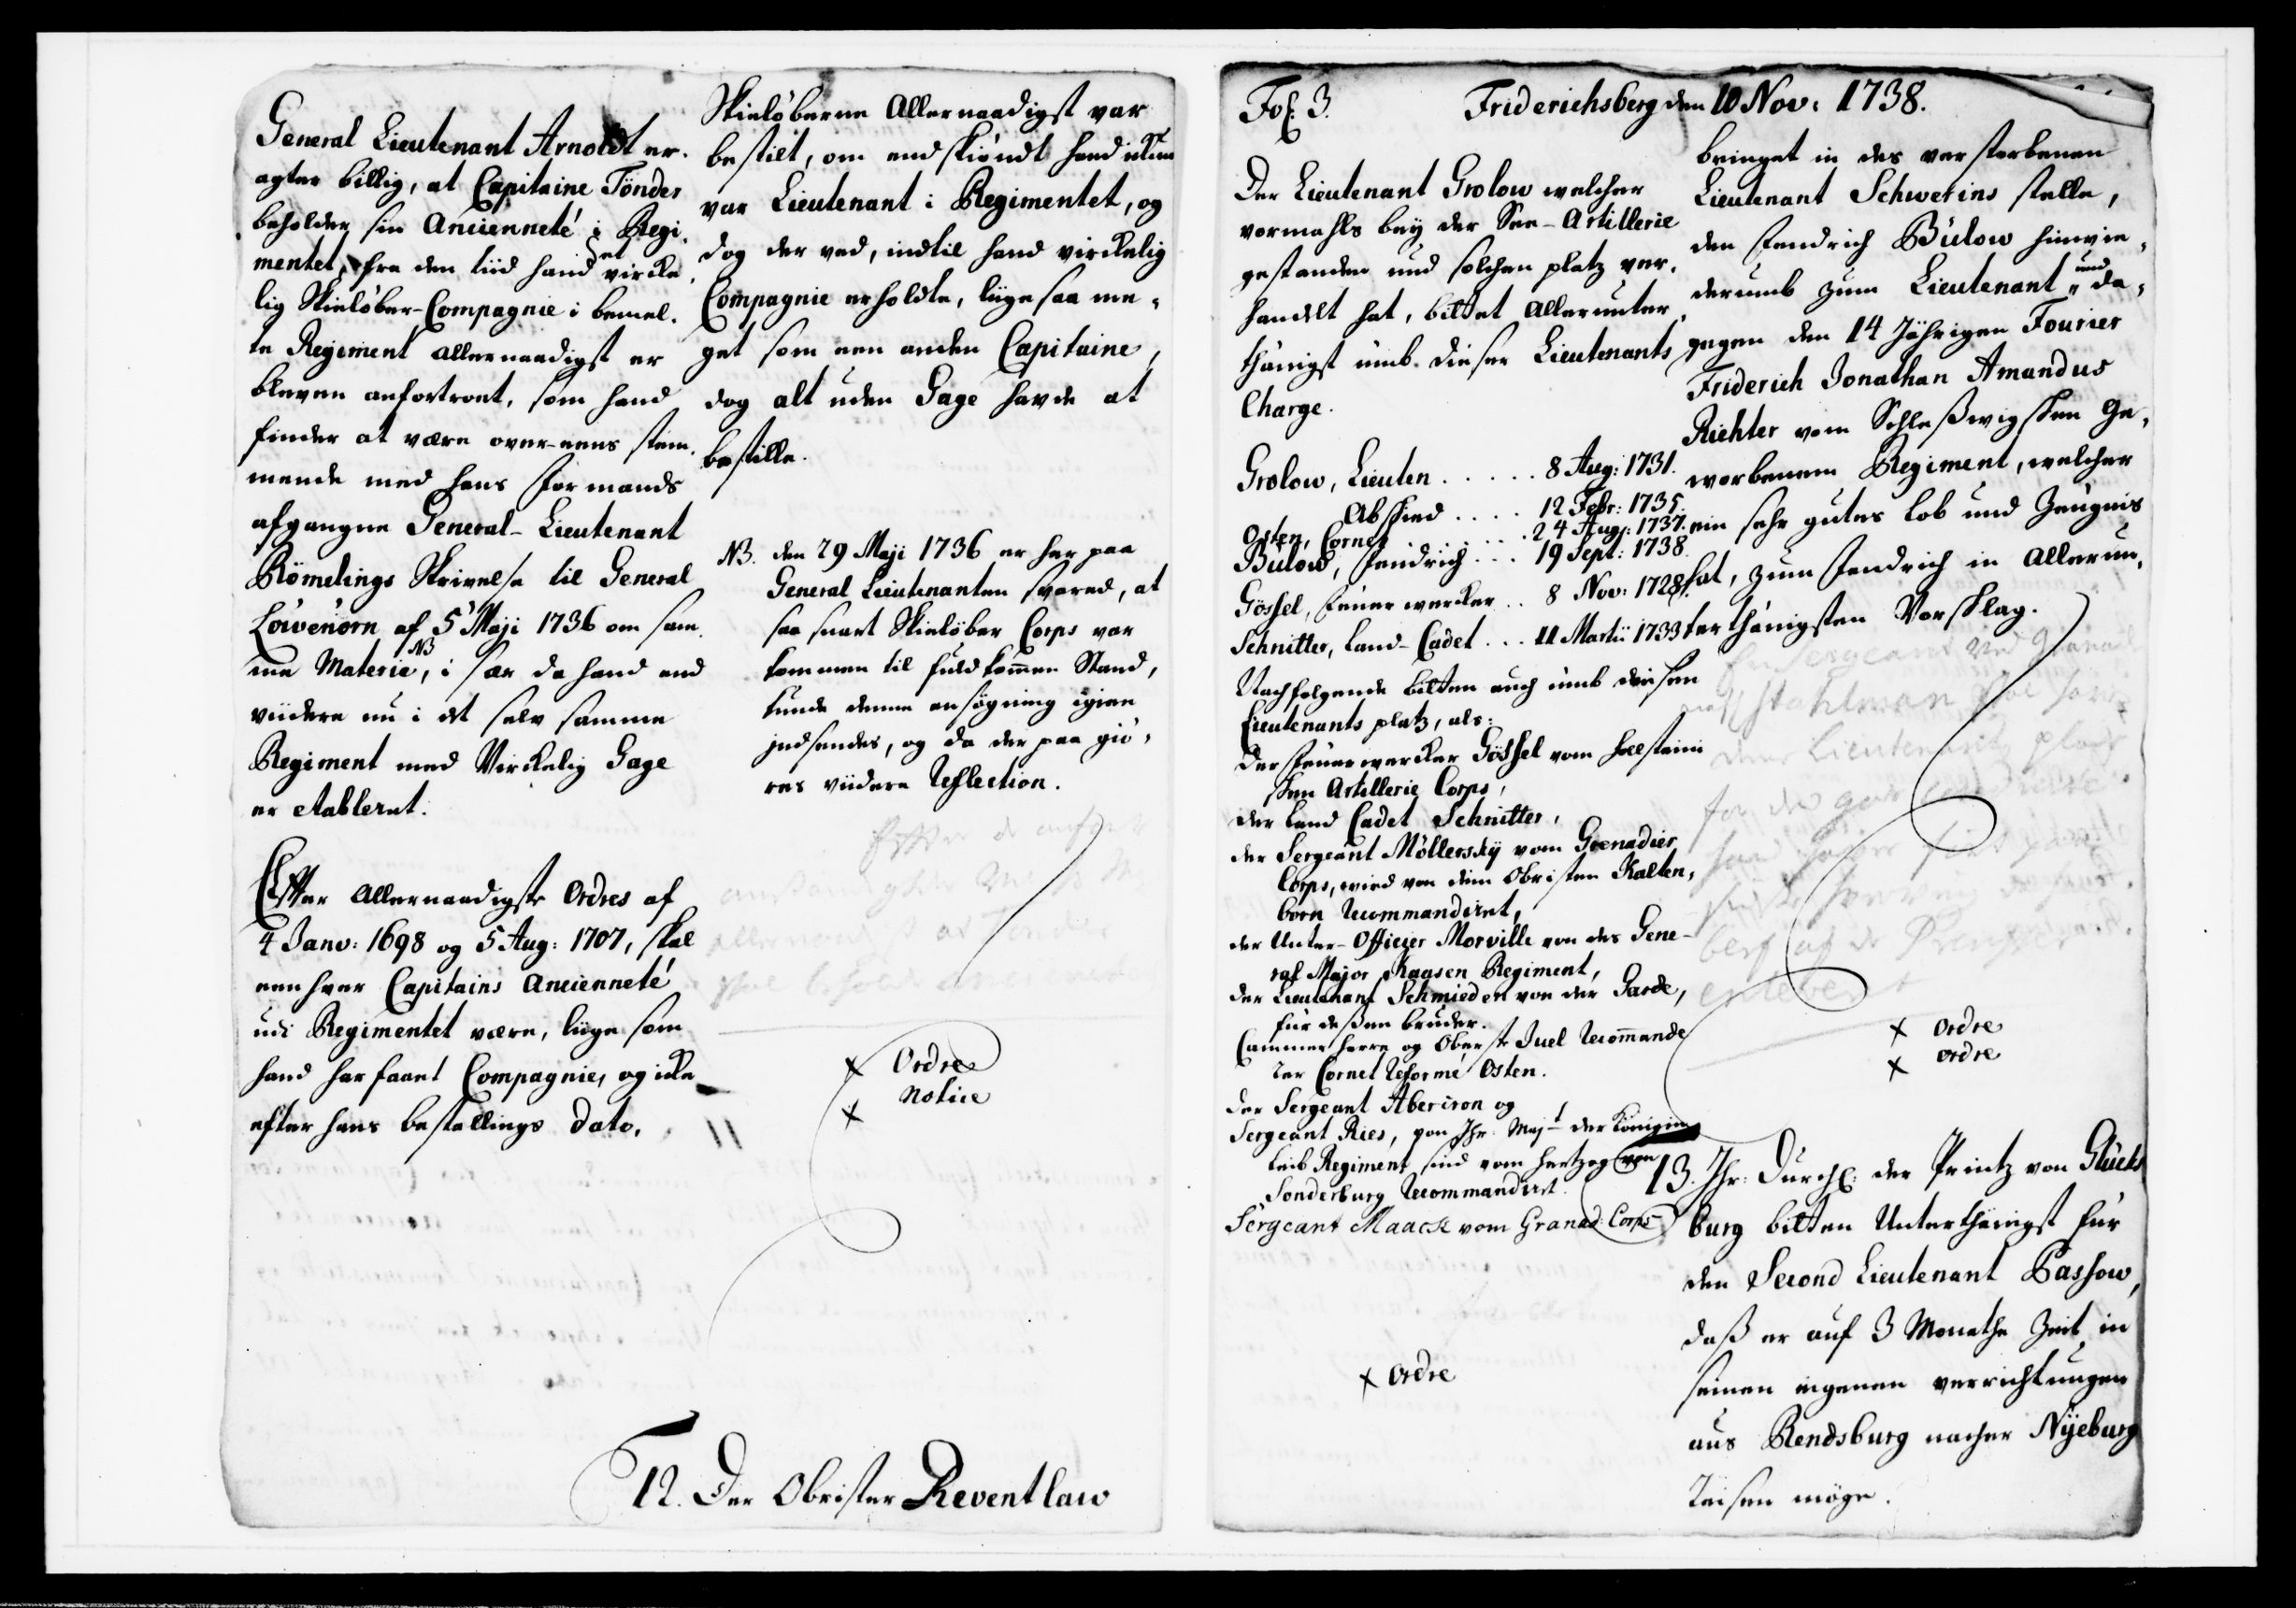 General Lieutenant Arnoldt er-
agter billig, at Capitaine Tönder
beholder sin Anciennete' i Regi-
mentet, fra den tiid hand et vircke-
lig Skielöber-Compagnie i bemel-
te Regiment allernaadigst er
bleven anfortroet, som hand
finder at være over-eens stem-
mende med hans Formands
afgangne General-Lieutenant
Römelings Skrivelse til General
Löwenörn af 5 Maji 1736 om sam-
me Materie, NB i sær da hand end
viidere nu i det selv samme
Regiment med Virckelig Gage
er etableret.
Efter Allernaadigste Ordres af
4 Janv: 1698 og 5 Aug: 1707, skal
een hver Capitains Anciennete'
udi Regimentet være, liige som
hand har faaet Compagnie, og icke
efter hans bestallings Dato.
Skielöberne Allernaadigst var
bestilt, om endskiöndt hand icke
var Lieutenant i Regimentet, og
dog der ved, indtil hand virckelig
Compagnie erholdte, liige saa me-
get som een anden Capitaine,
dog alt uden Gage havde at
bestille.
NB. den 29 Maji 1736 er her paa
General Lieutenanten svared, at
saa snart Skielöber Corps var
kommen til fuldkommen Stand,
kunde denne ansögning igien
indsendes, og da der paa giö-
res viidere Reflection.
allernaadigst at Tönder
skal beholde anciennete
x Ordre
x Notice
12. Der Obrister Reventlaw
Fol. 3. Friderichsberg den 10 Nov: 1738.
Der Lieutenant Grolow welcher
vormahls bey der See-Artillerie
gestanden und solchen platz ver-
handelt hat, bittet Allerunter-
thänigst umb dieser Lieutenants
Charge.
Grolow, Lieuten. . . . . 8 Aug: 1731.
Abschied . . . . 12 Febr: 1735.
Osten, Cornet . . . . 24 Aug: 1737.
Bülow, Fendrich . . . 19 Sept: 1738.
Gössel, Feuerwercker . . 8 Nov: 1728.
Schnitter, Land-Cadet . . . 11 Martii 1733
Nachfolgende bitten auch umb diesen
Lieutenants platz, als:
Der Feuerwercker Gössel vom Holsteini-
schen Artillerie Corps,
der Land Cadet Schnitter,
der Sergeant Möllersky vom Grenadier
Corps, wird von dem Obristen Kalten-
born Recommandiret,
der Unter-Officier Morville von des Gene-
ral Major Kaasen Regiment,
der Lieutenant Schmieden von der Garde,
für deßen bruder.
Cammerherre og Oberste Juel Recommande-
rer Cornet Reformé Osten.
Der Sergeant Abercron og
Sergeant Ries, von Ihr. Majt der Königin
Leib Regiment sind vom Hertzog von
Sonderburg Recommandiret.
Sergeant Maack vom Granad: Corps
x Ordre
bringet in des verstorbenen
Lieutenant Schwerins stelle,
den Fendrich Bülow hinwie-
derumb zum Lieutenant, und da-
gegen den 14 Jährigen Fourier
Friderich Jonathan Amandus
Richter vom Schleßwigschen Ge-
worbenem Regiment, welcher
ein sehr gutes Lob und Zeugnis
hat, zum Fendrich in Allerun-
terthänigsten Vorschlag.
Sergeant ved
Stahlman skal have
denne Lieutenants plads
for de gode
x Ordre
x Ordre
13. Ihr: Durchl: der Printz von Glücks
burg bitten Unterthänigst für
den Second Lieutenant Passow,
daß er auf 3 Monathe Zeit in
seinen eigenen verrichtungen
aus Rendsburg nacher Nyeburg
Reisen möge.